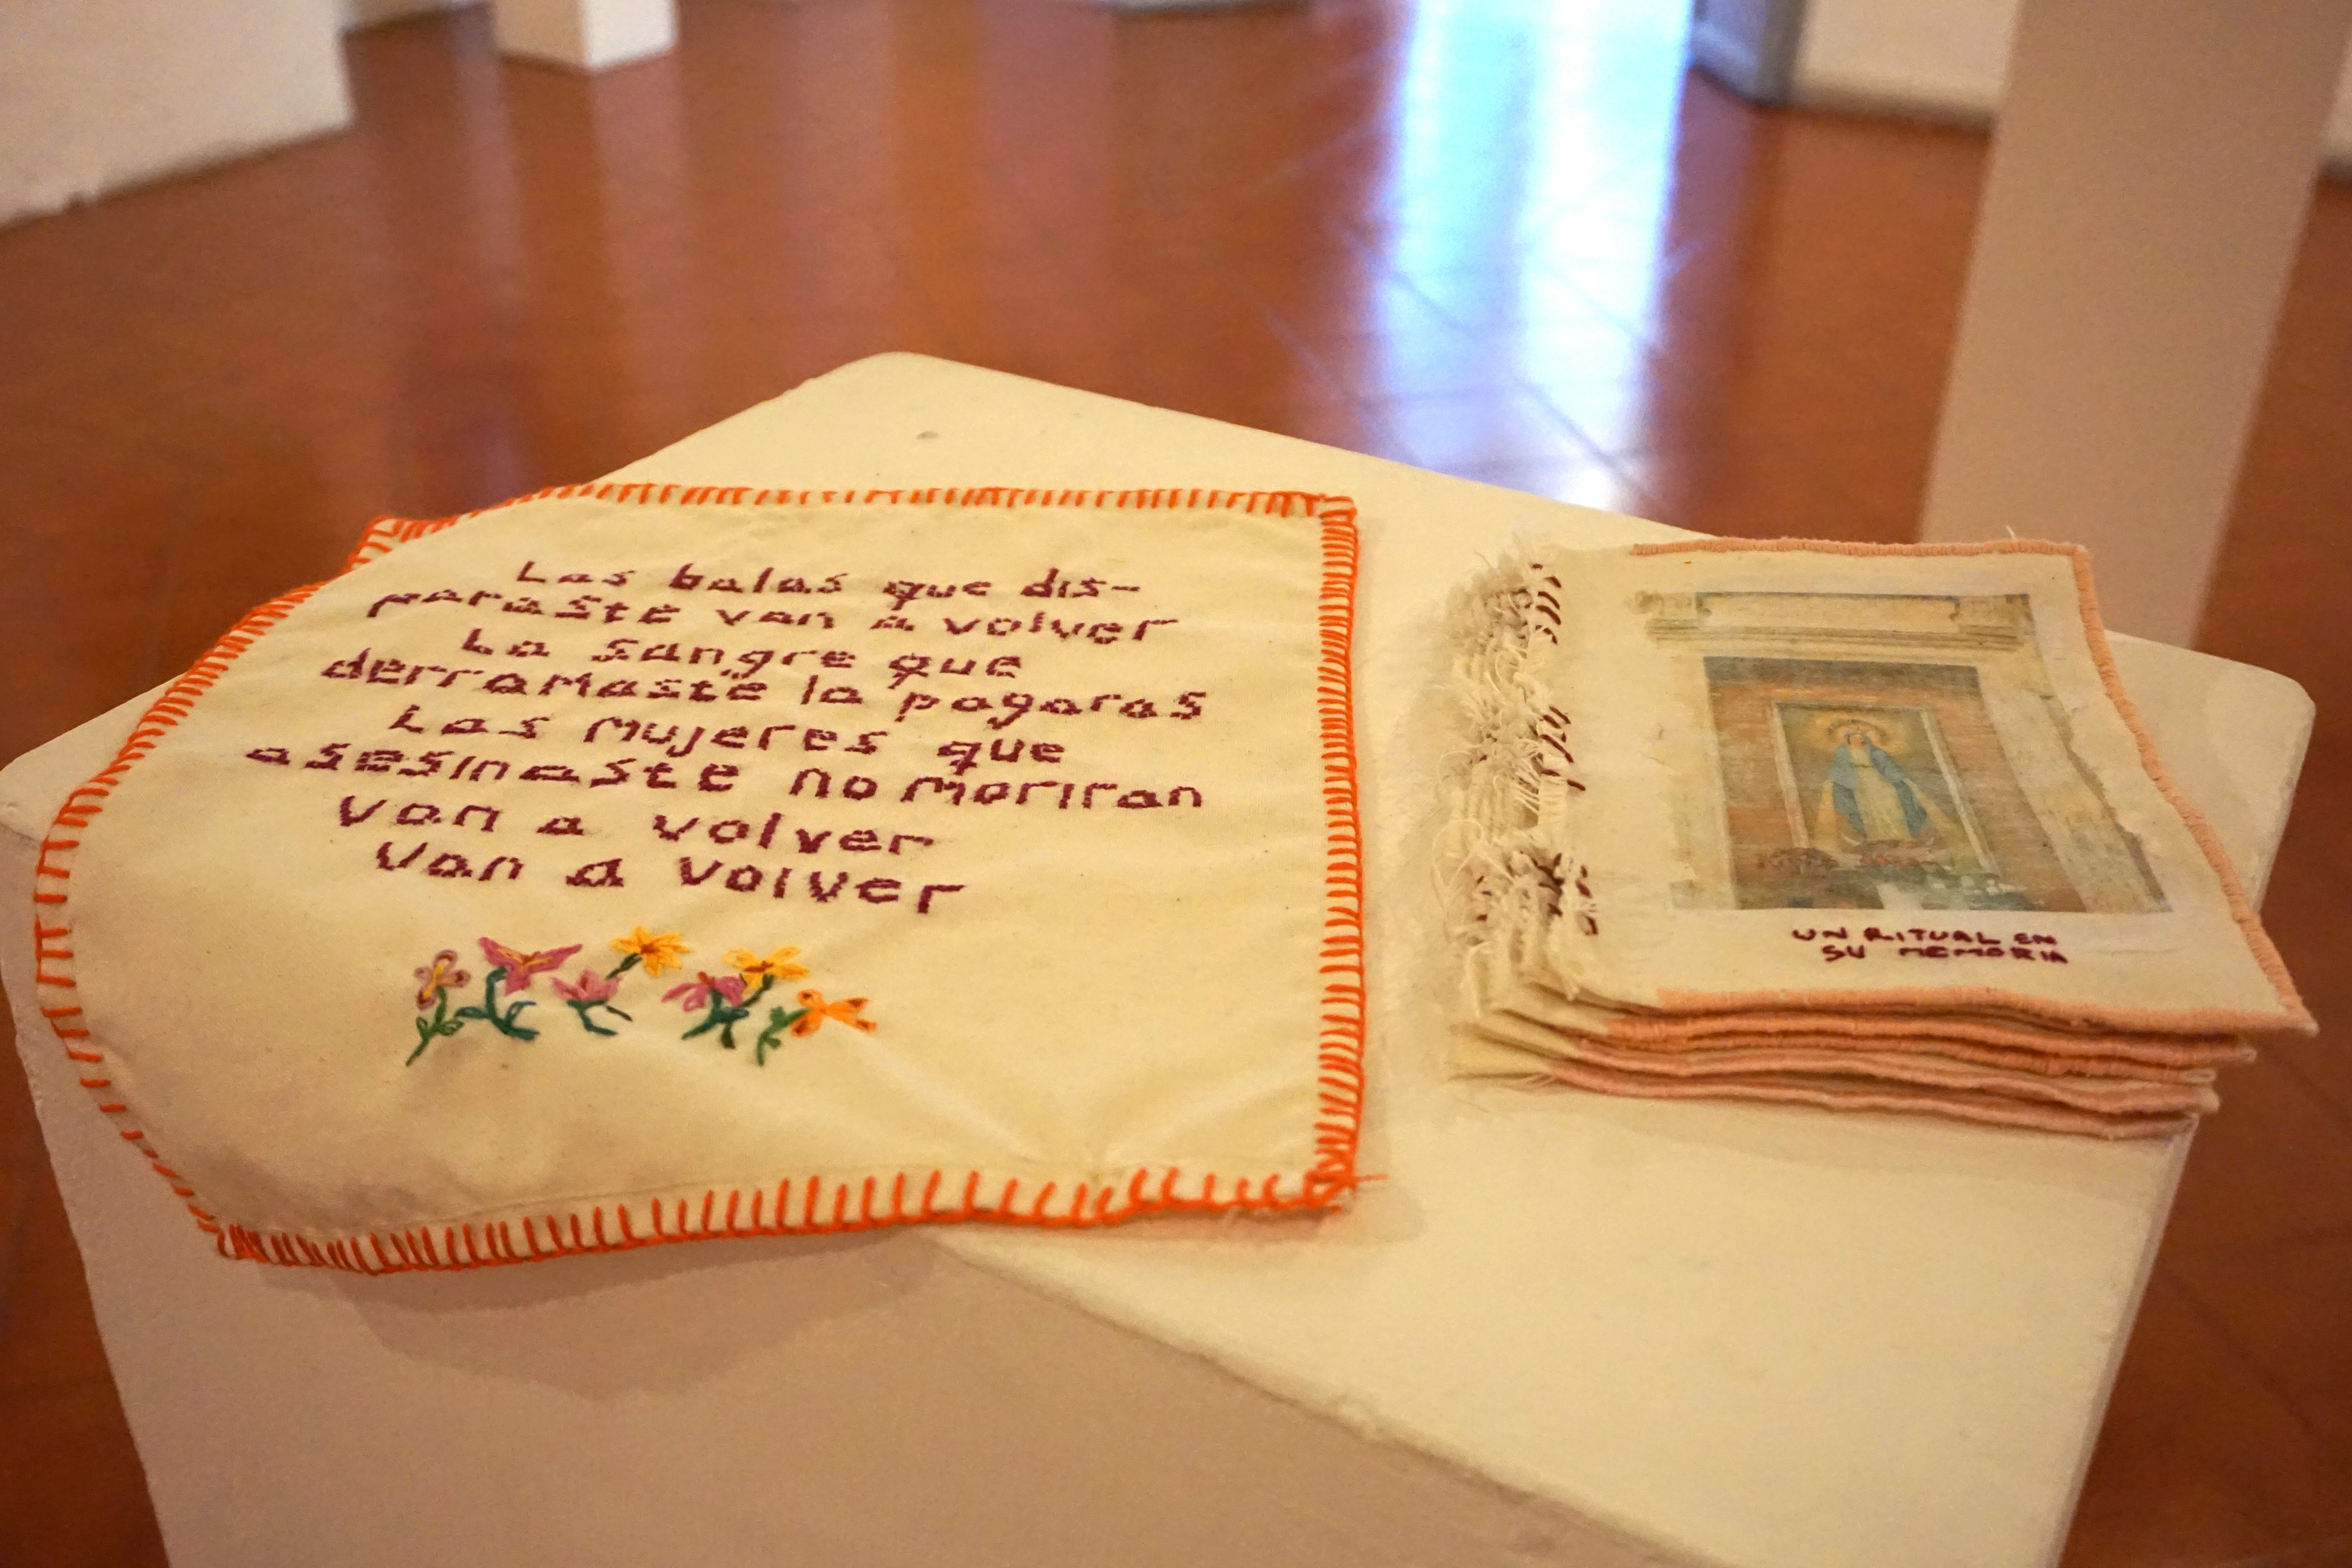 Las balas que dis-
paraste van a volver
La sangre que
derramaste la pagaras
Las mujeres que
asesinaste no moriran
Van a volver
Van a volver
UN RITUAL EN
SU MEMORIA